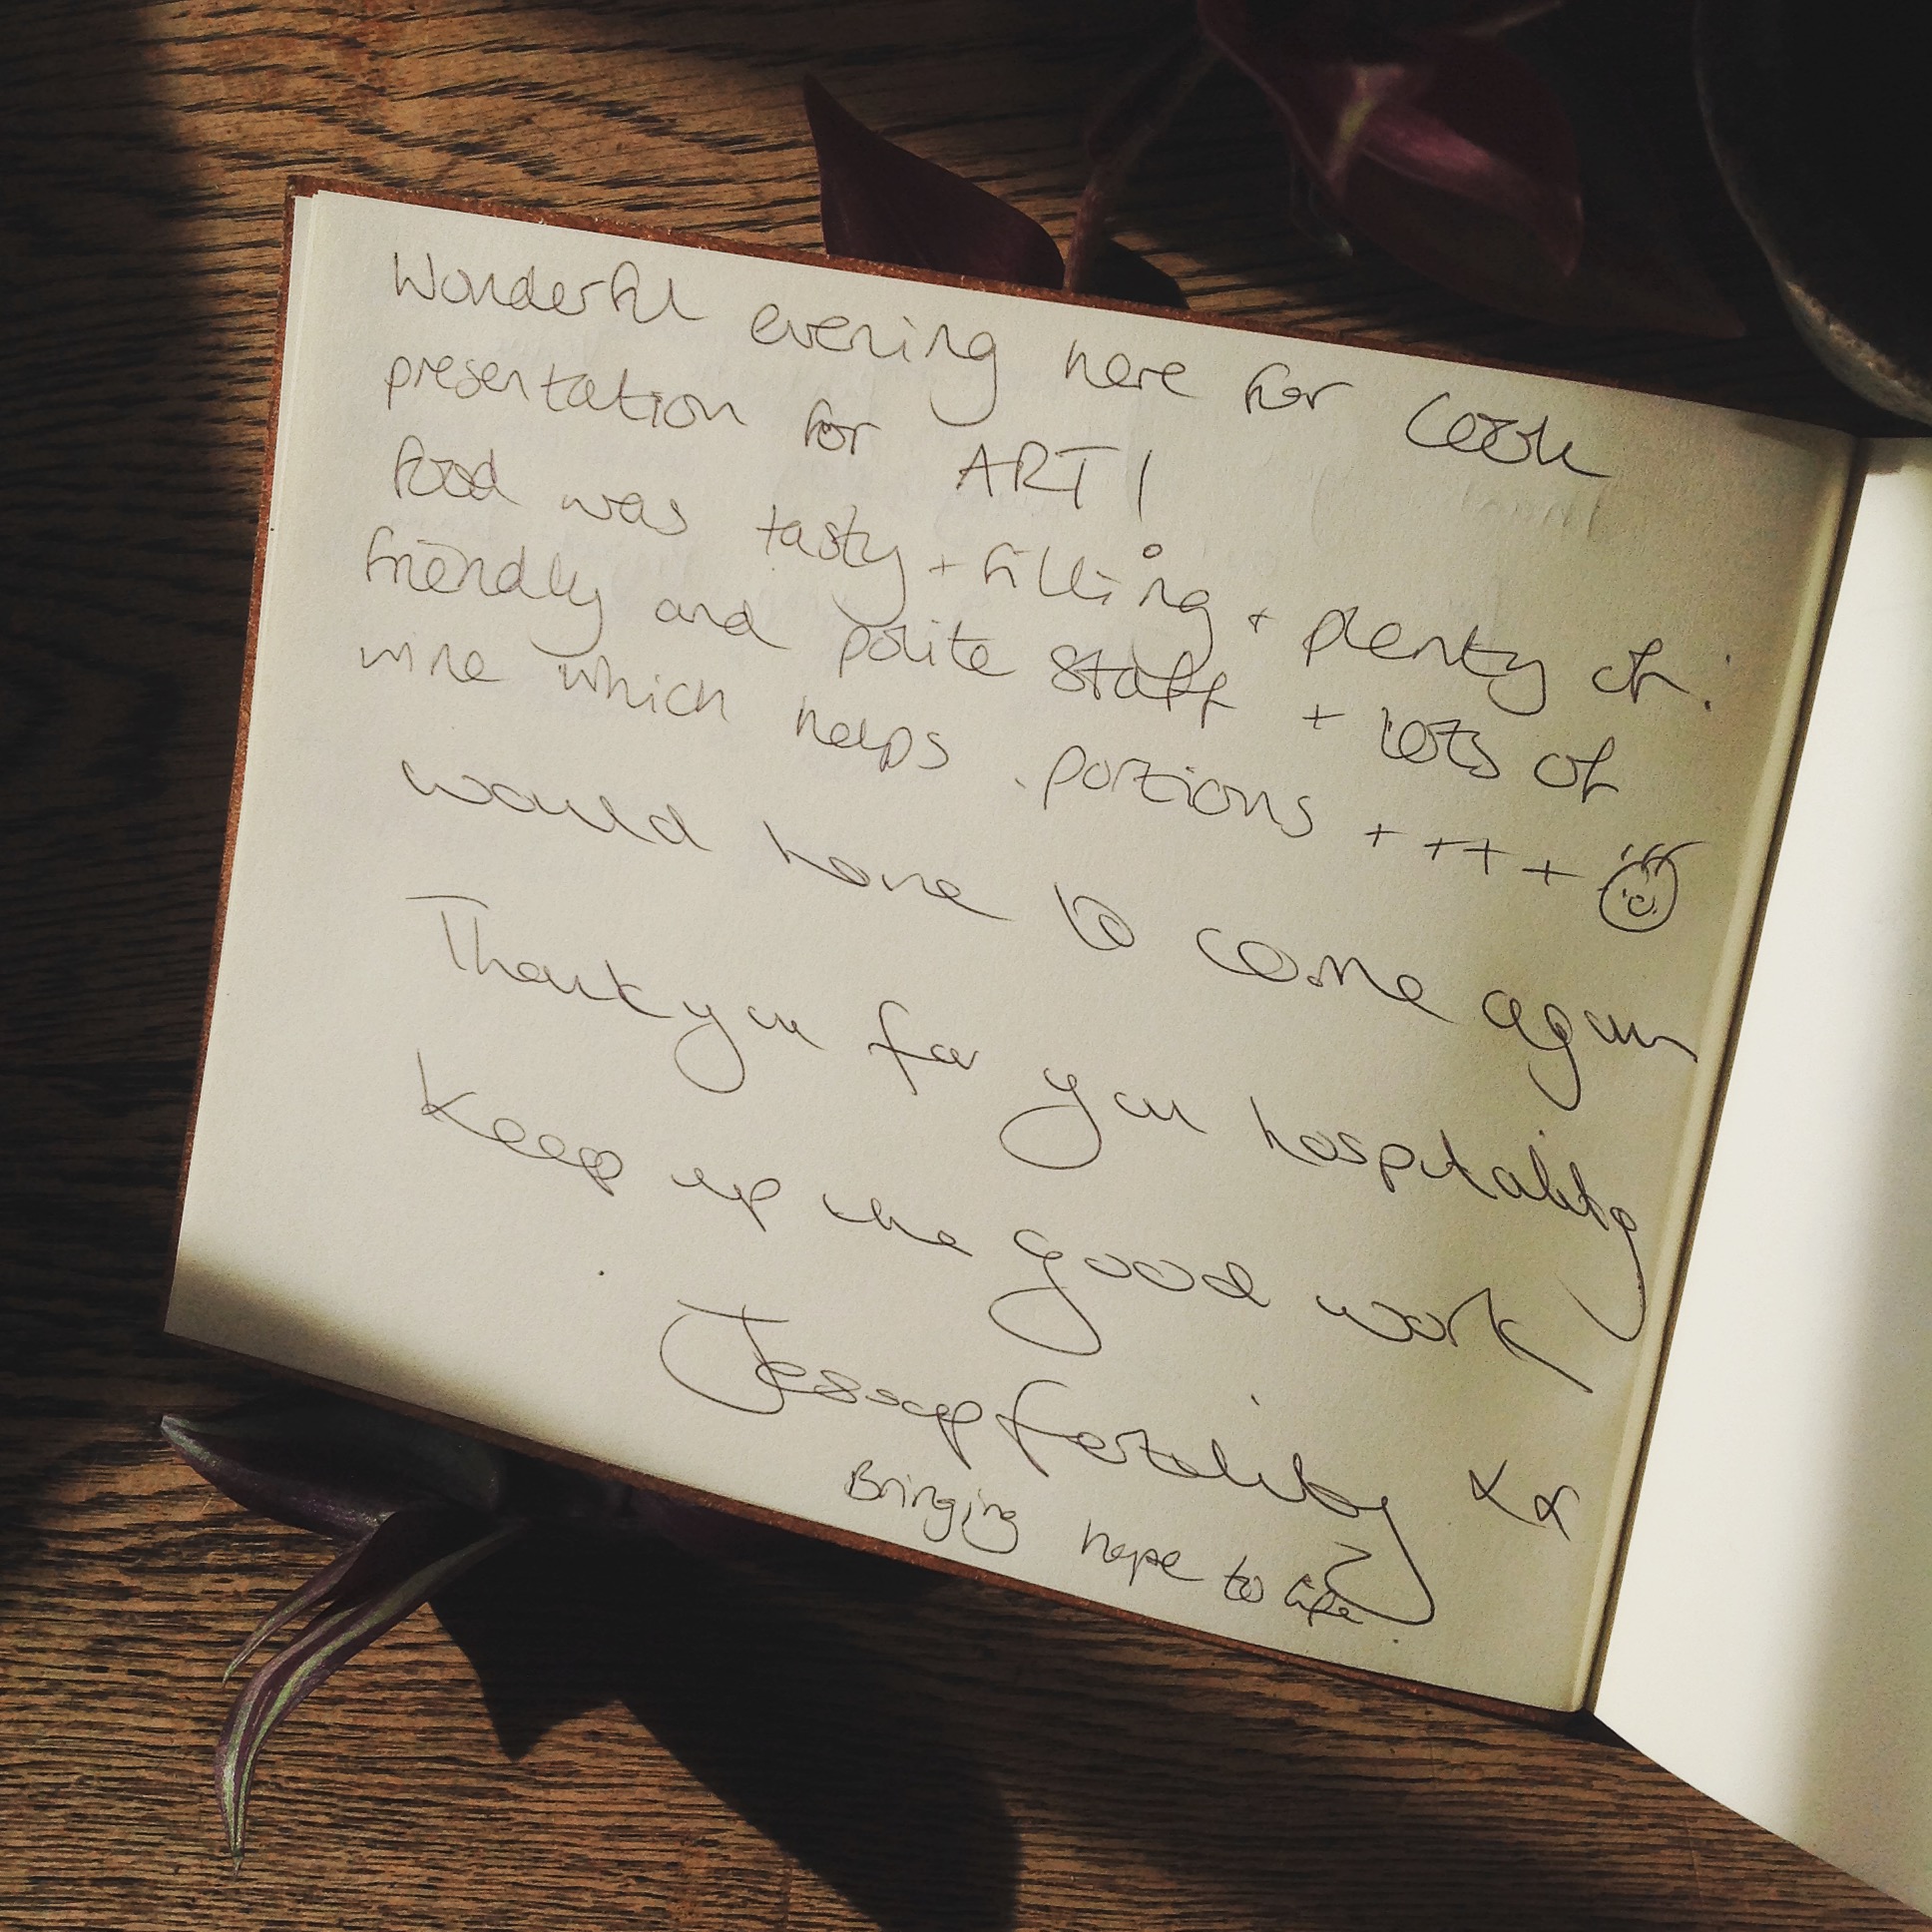 Wonderful evening here for Cook
presentation for ART!
Food was tasty + filling + plenty of.
Friendly and polite staff + lots of
wine which helps. portions + +++ +
would love to come again
Thank you for your hospitality
Keep up the good work
Jessop fertility xx
Bringing hope to life.